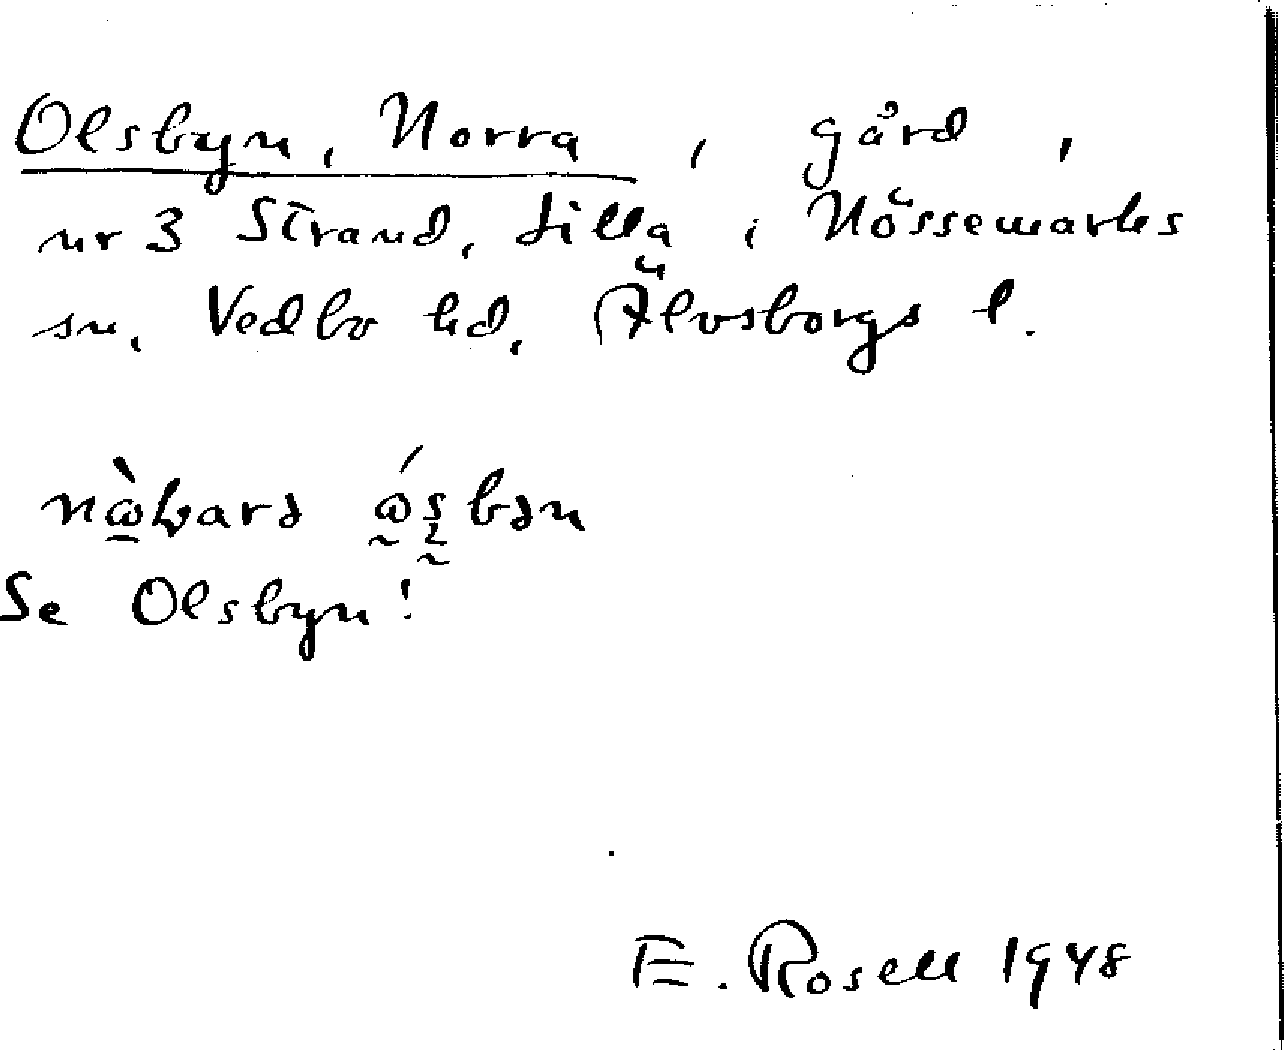 Olsbyn, Norra, gård,
nr 3 Strand, Lilla i Nössemarks
sn, Vedbo hd, Älvsborgs l.
Se Olsbyn!
E. Rosell 1948